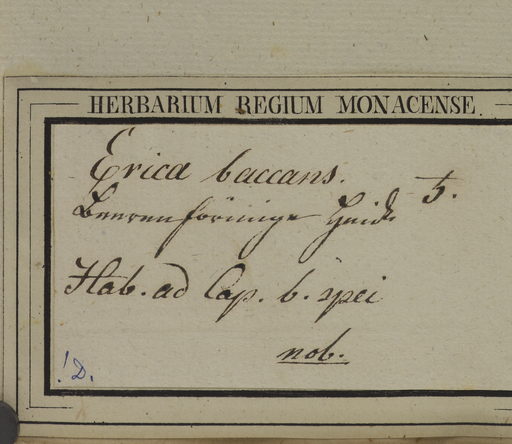 HERBARIUM REGIUM MONACENSE.
Erica baccans.
Beerenförmige Heide ♄.
Hab. ad Cap. b. spei
nob.
! D.